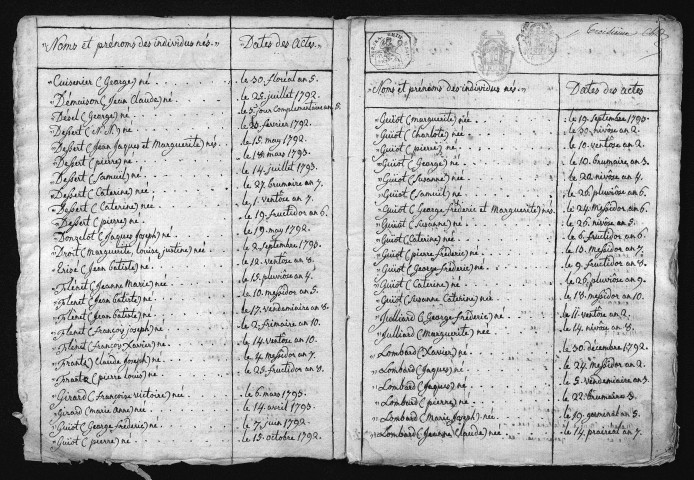 Noms et prénoms des individus nés.
Dates des actes.
Cuisenier (George) né
le 30. floréal an 5.
Démaison (Jean Claude) né
le 25. juillet 1792.
Dézel (George) né
le 5e jour complémentaire an 5.
Dessert né
février 1792.
Dessert (Jean Jaques et Marguerite) nés
le 15. may 1792.
Dessert (pierre) né
le 18. mars 1793.
Dessert (Samuel) né
le 14. juillet 1793.
Dessert (Caterine) née
le 27. brumaire an 7.
Dessert (Caterine) née
le 1. ventôse an 7.
Dessert (pierre) né
le 19. fructidor an 6.
Donzelot (Jaques Joseph) né
le 19. may 1792.
Droit (Marguerite, Louise, justine) née
le 2. septembre 1790.
(Jean batiste) né
le 12. ventôse an 8.
(Jeanne Marie) née
le 15. pluviôse an 4.
(Jean batiste) né
le 10. messidor an 5.
(Jean batiste) né
le 17. vendemiaire an 8.
(françois joseph) né
le 2. frimaire an 10.
(françois Xavier) né
le 14. ventôse an 10.
Claude Joseph) né
le 4. messidor an 7.
(pierre louis) né
le 25. fructidor an 8.
Gérard (françoise victoire) née
le 6. mars 1793.
Girard (marie anne) née
le 14. avril 1793.
Guiot (George frederic) né
le 7. juin 1792.
Guiot (pierre) né
le 15. octobre 1792.
Noms et prénoms des individus nés.
Dates des actes
Guiot (marguerite) née
le 19. septembre 1790.
Guiot (Charlote) née
le 30. nivôse an 2.
Guiot (pierre) né
le 10. ventôse an 2.
Guiot (George) né
le 10. brumaire an 3.
Guiot (Susanne) née
le 20. nivôse an 4.
Guiot (Samuel) né
le 26. pluviôse an 6.
Guiot (George frederic et Marguerite) nés
le 24. Messidor an 6.
Guiot (Susanne) née
le 26. nivôse an 5.
Guiot (Caterine) née
le 6. fructidor an 6.
Guiot (pierre frederic) né
le 10. Messidor an 7.
Guiot (George frederic) né
le 9. fructidor an 8.
Guiot (Caterine) née
le 26. pluviôse an 9.
Guiot (Susanne Caterine) née
le 18. messidor an 10.
Julliard (George frederic) né
le 11. ventôse an 2.
Julliard (Marguerite) née
le 14. nivôse an 8.
Lombard (Xavier) né
le 30. décembre 1792.
Lombard (Jaques) né
le 24. messidor an 2.
Lombard (Jaques) né
le 5. vendemiaire an 3.
Lombard (pierre) né
le 22. brumaire an 8.
Lombard (Marie Joseph) née
le 19. germinal an 5.
Lombard (Jeanne Claude) née
le 14. prairial an 7.